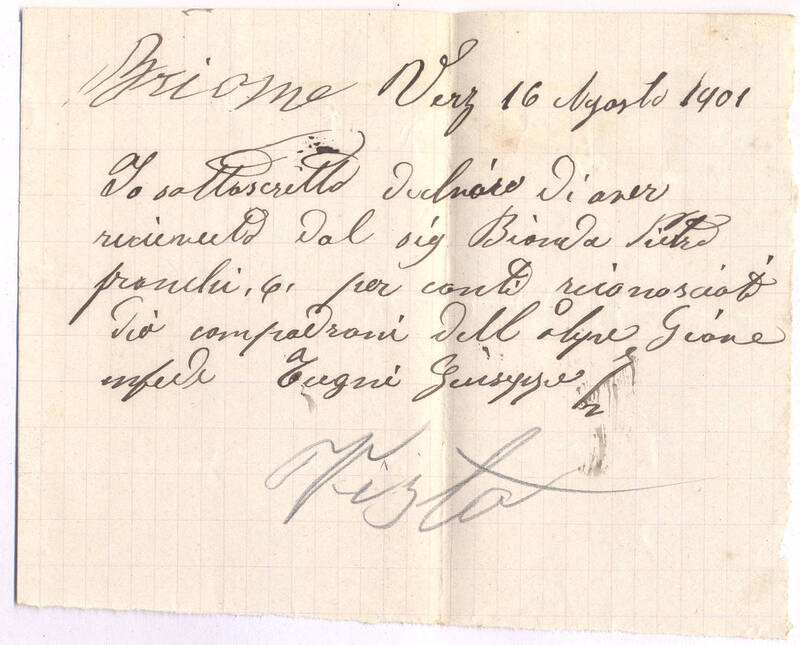 Brione Verz 16 Agosto 1901
Io sottoscritto di aver
ricievuto dal sig Bionda Pietro
franchi, 6, per conti riconosciati
compadroni dell alpe Gione
infede Tugni Giuseppe
Visto